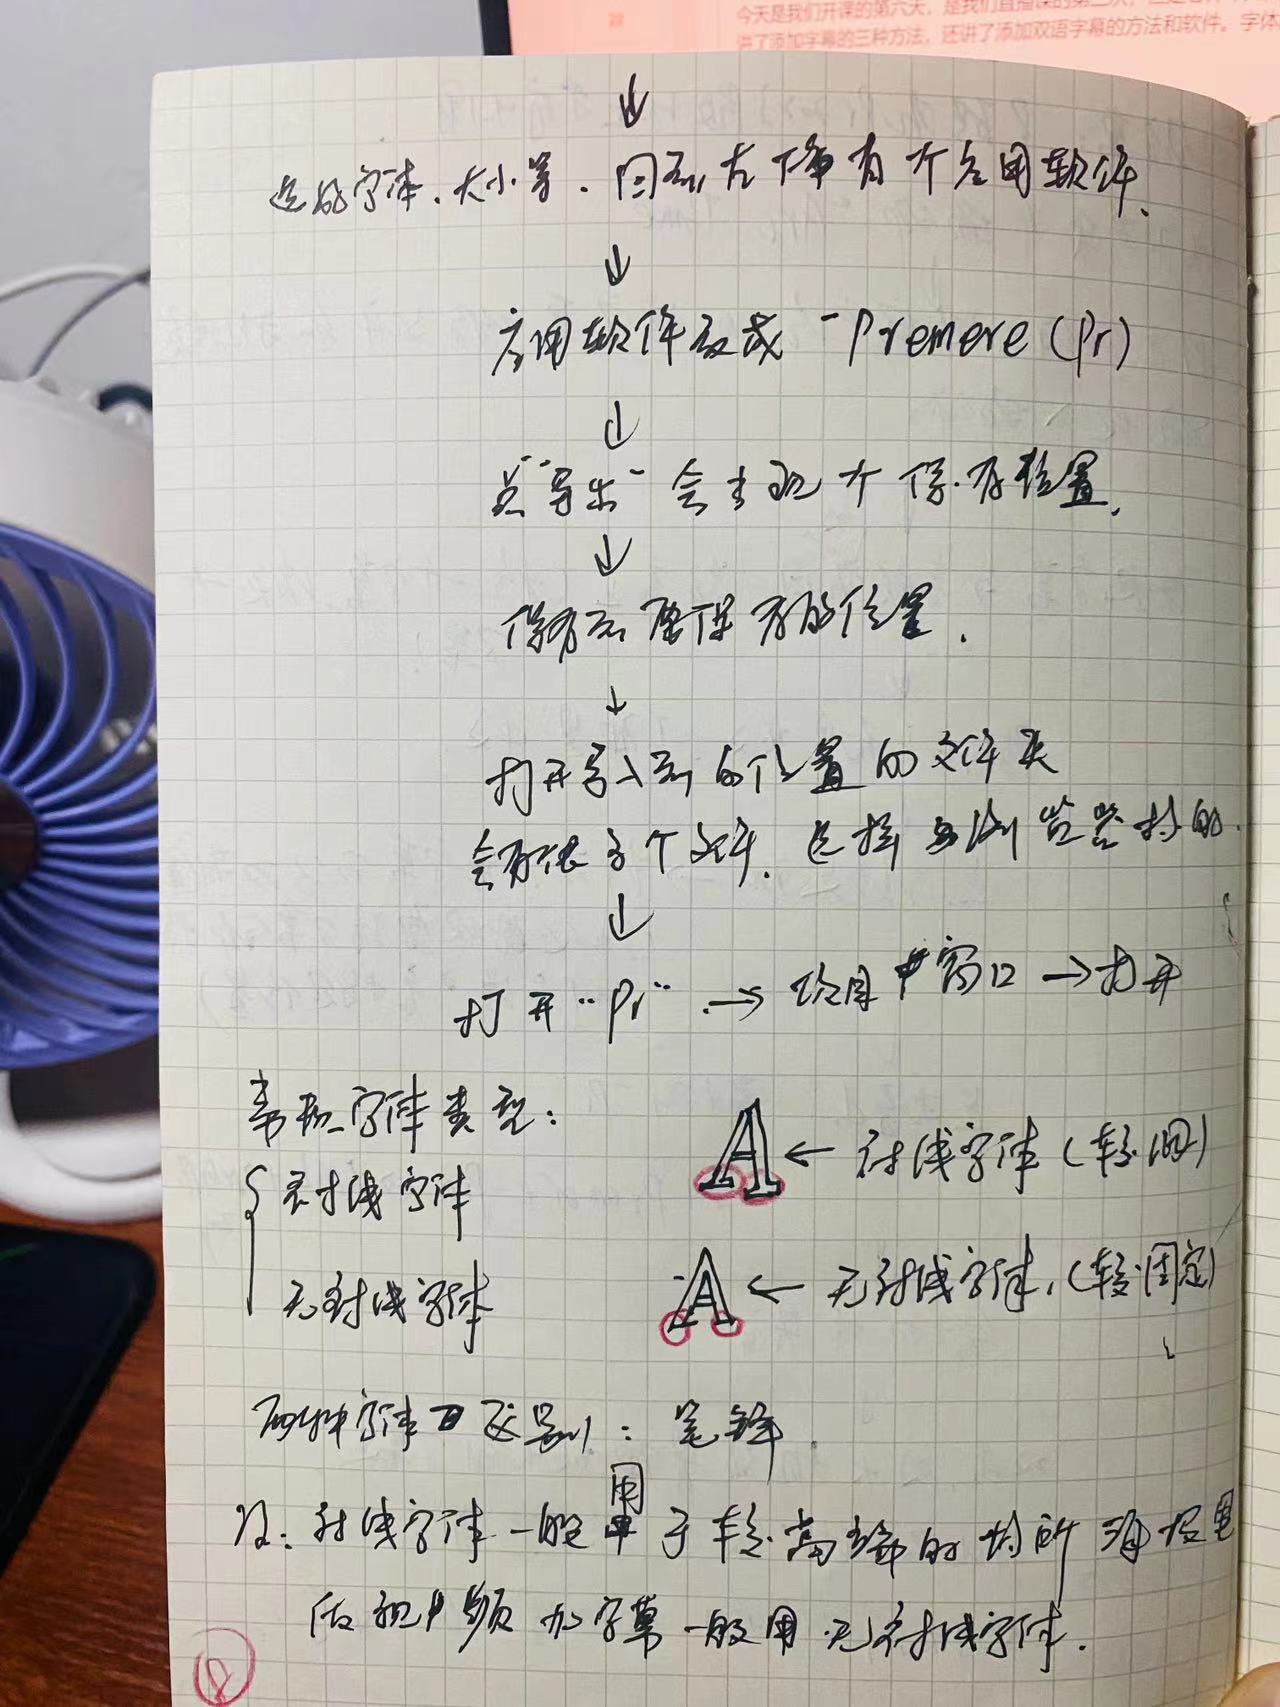 今天是我们开课的第六天，是我们直播课的第二次，
讲了添加字幕的三种方法，还讲了添加双语字幕的方法和软件。字体
22
↓
选好字体、大小等、图标右下角有个应用软件.
↓
应用软件改成 - Premere (Pr)
↓
点"导出" 会出现个保存位置.
↓
保存到要保存的位置.
↓
打开导入到的位置的文件夹
会有很多个文件. 选择 的.
↓
打开 "Pr" → 项目 窗口 → 打开
常规字体类型:
衬线字体
A ← 衬线字体 (较细)
无衬线字体
A ← 无衬线字体. (较固定)
两种字体区别: 笔锋.
注: 衬线字体一般用于较高端的场所 海报里
做视频加字幕一般用无衬线字体.